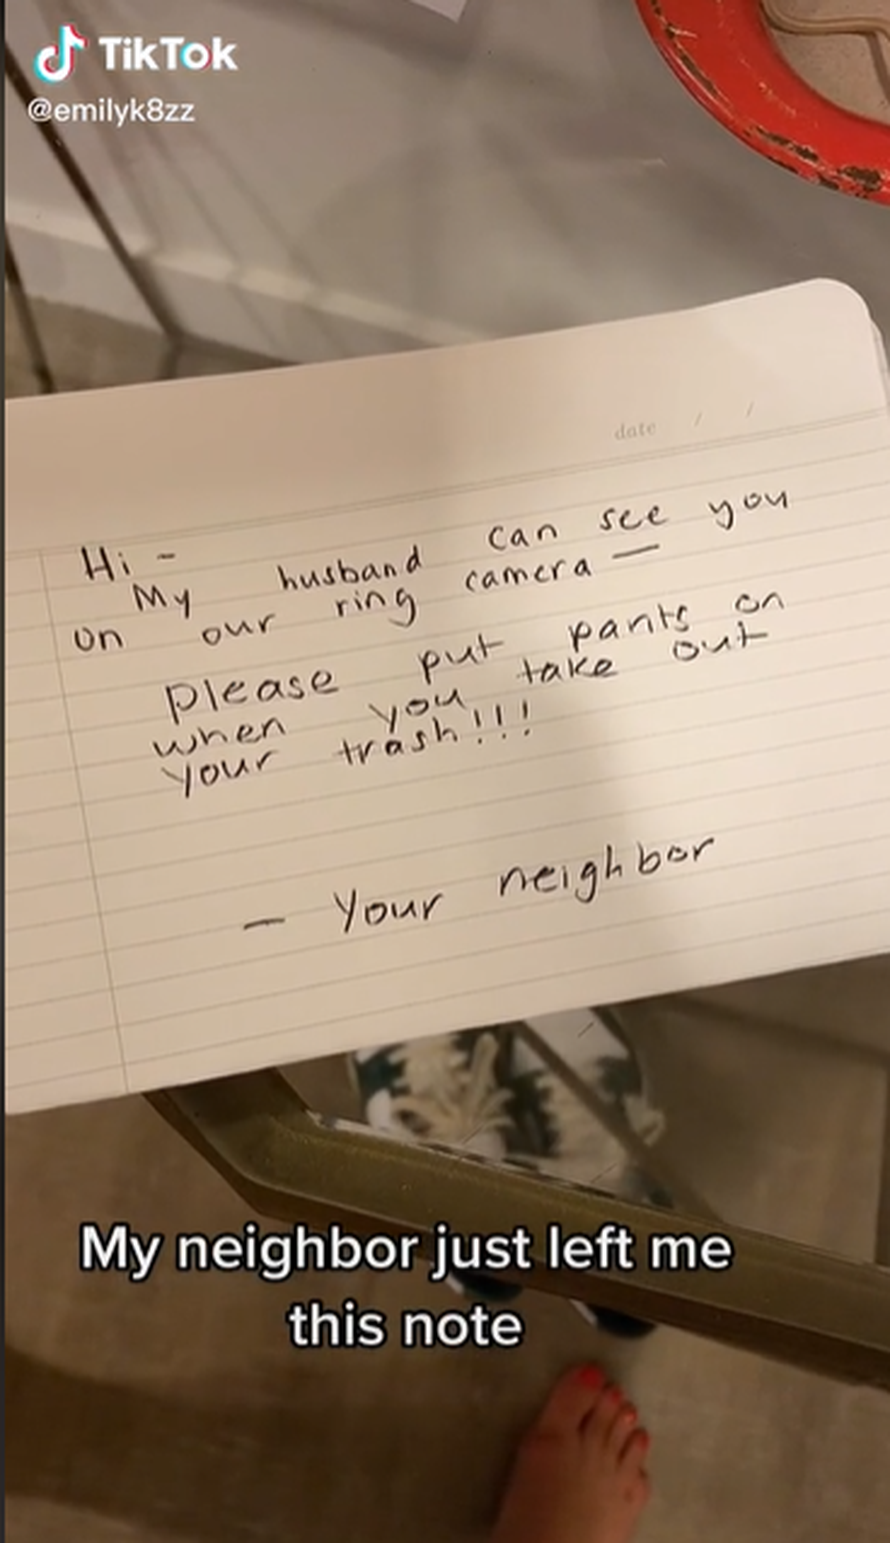 TikTok
@emilyk8zz
date / /
Hi -
My husband can see you
on our ring camera —
please put pants on
when you take out
your trash!!!
- Your neighbor
My neighbor just left me
this note